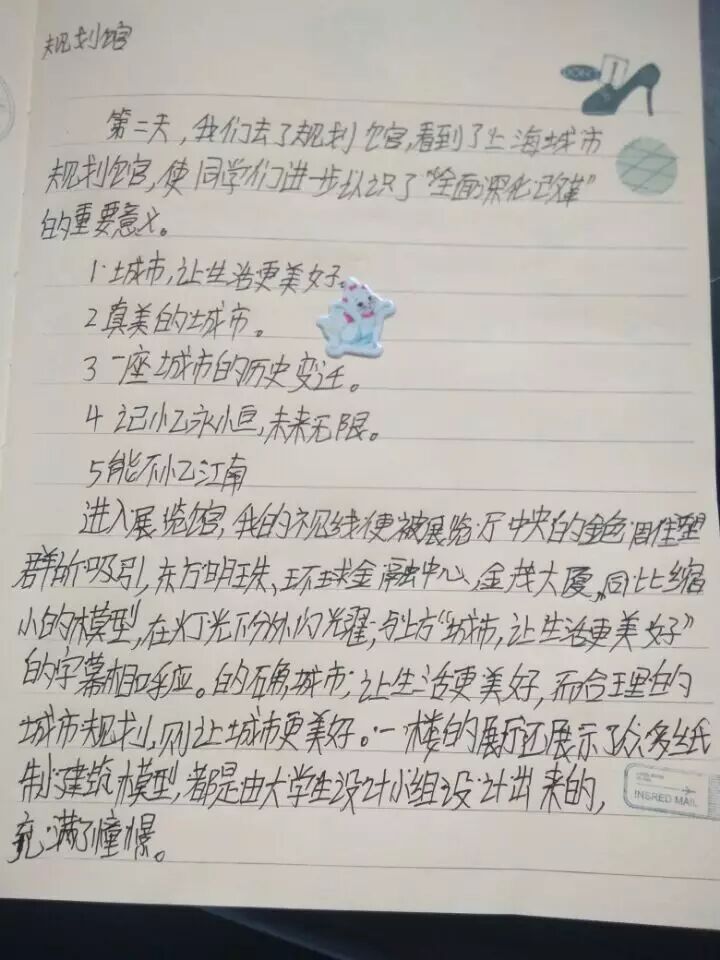 规划馆
第二天，我们去了规划馆，看到了上海城市
规划馆，使同学们进一步认识了“全面深化改革”
的重要意义。
1 城市，让生活更美好。
2 真美的城市。
3 一座城市的历史变迁。
4 记忆永恒，未来无限。
5 能不忆江南
进入展览馆，我的视线便被展览厅中央的金色雕塑
群所吸引，东方明珠、环球金融中心、金茂大厦，同比缩
小的模型，在灯光下分外闪耀，与上方“城市，让生活更美好”
的字幕相呼应。的确，城市，让生活更美好，而合理的
城市规划，则让城市更美好。一楼的展厅还展示了众多纸
制建筑模型，都是由大学生设计小组设计出来的，
充满了憧憬。
INSRED MAIL